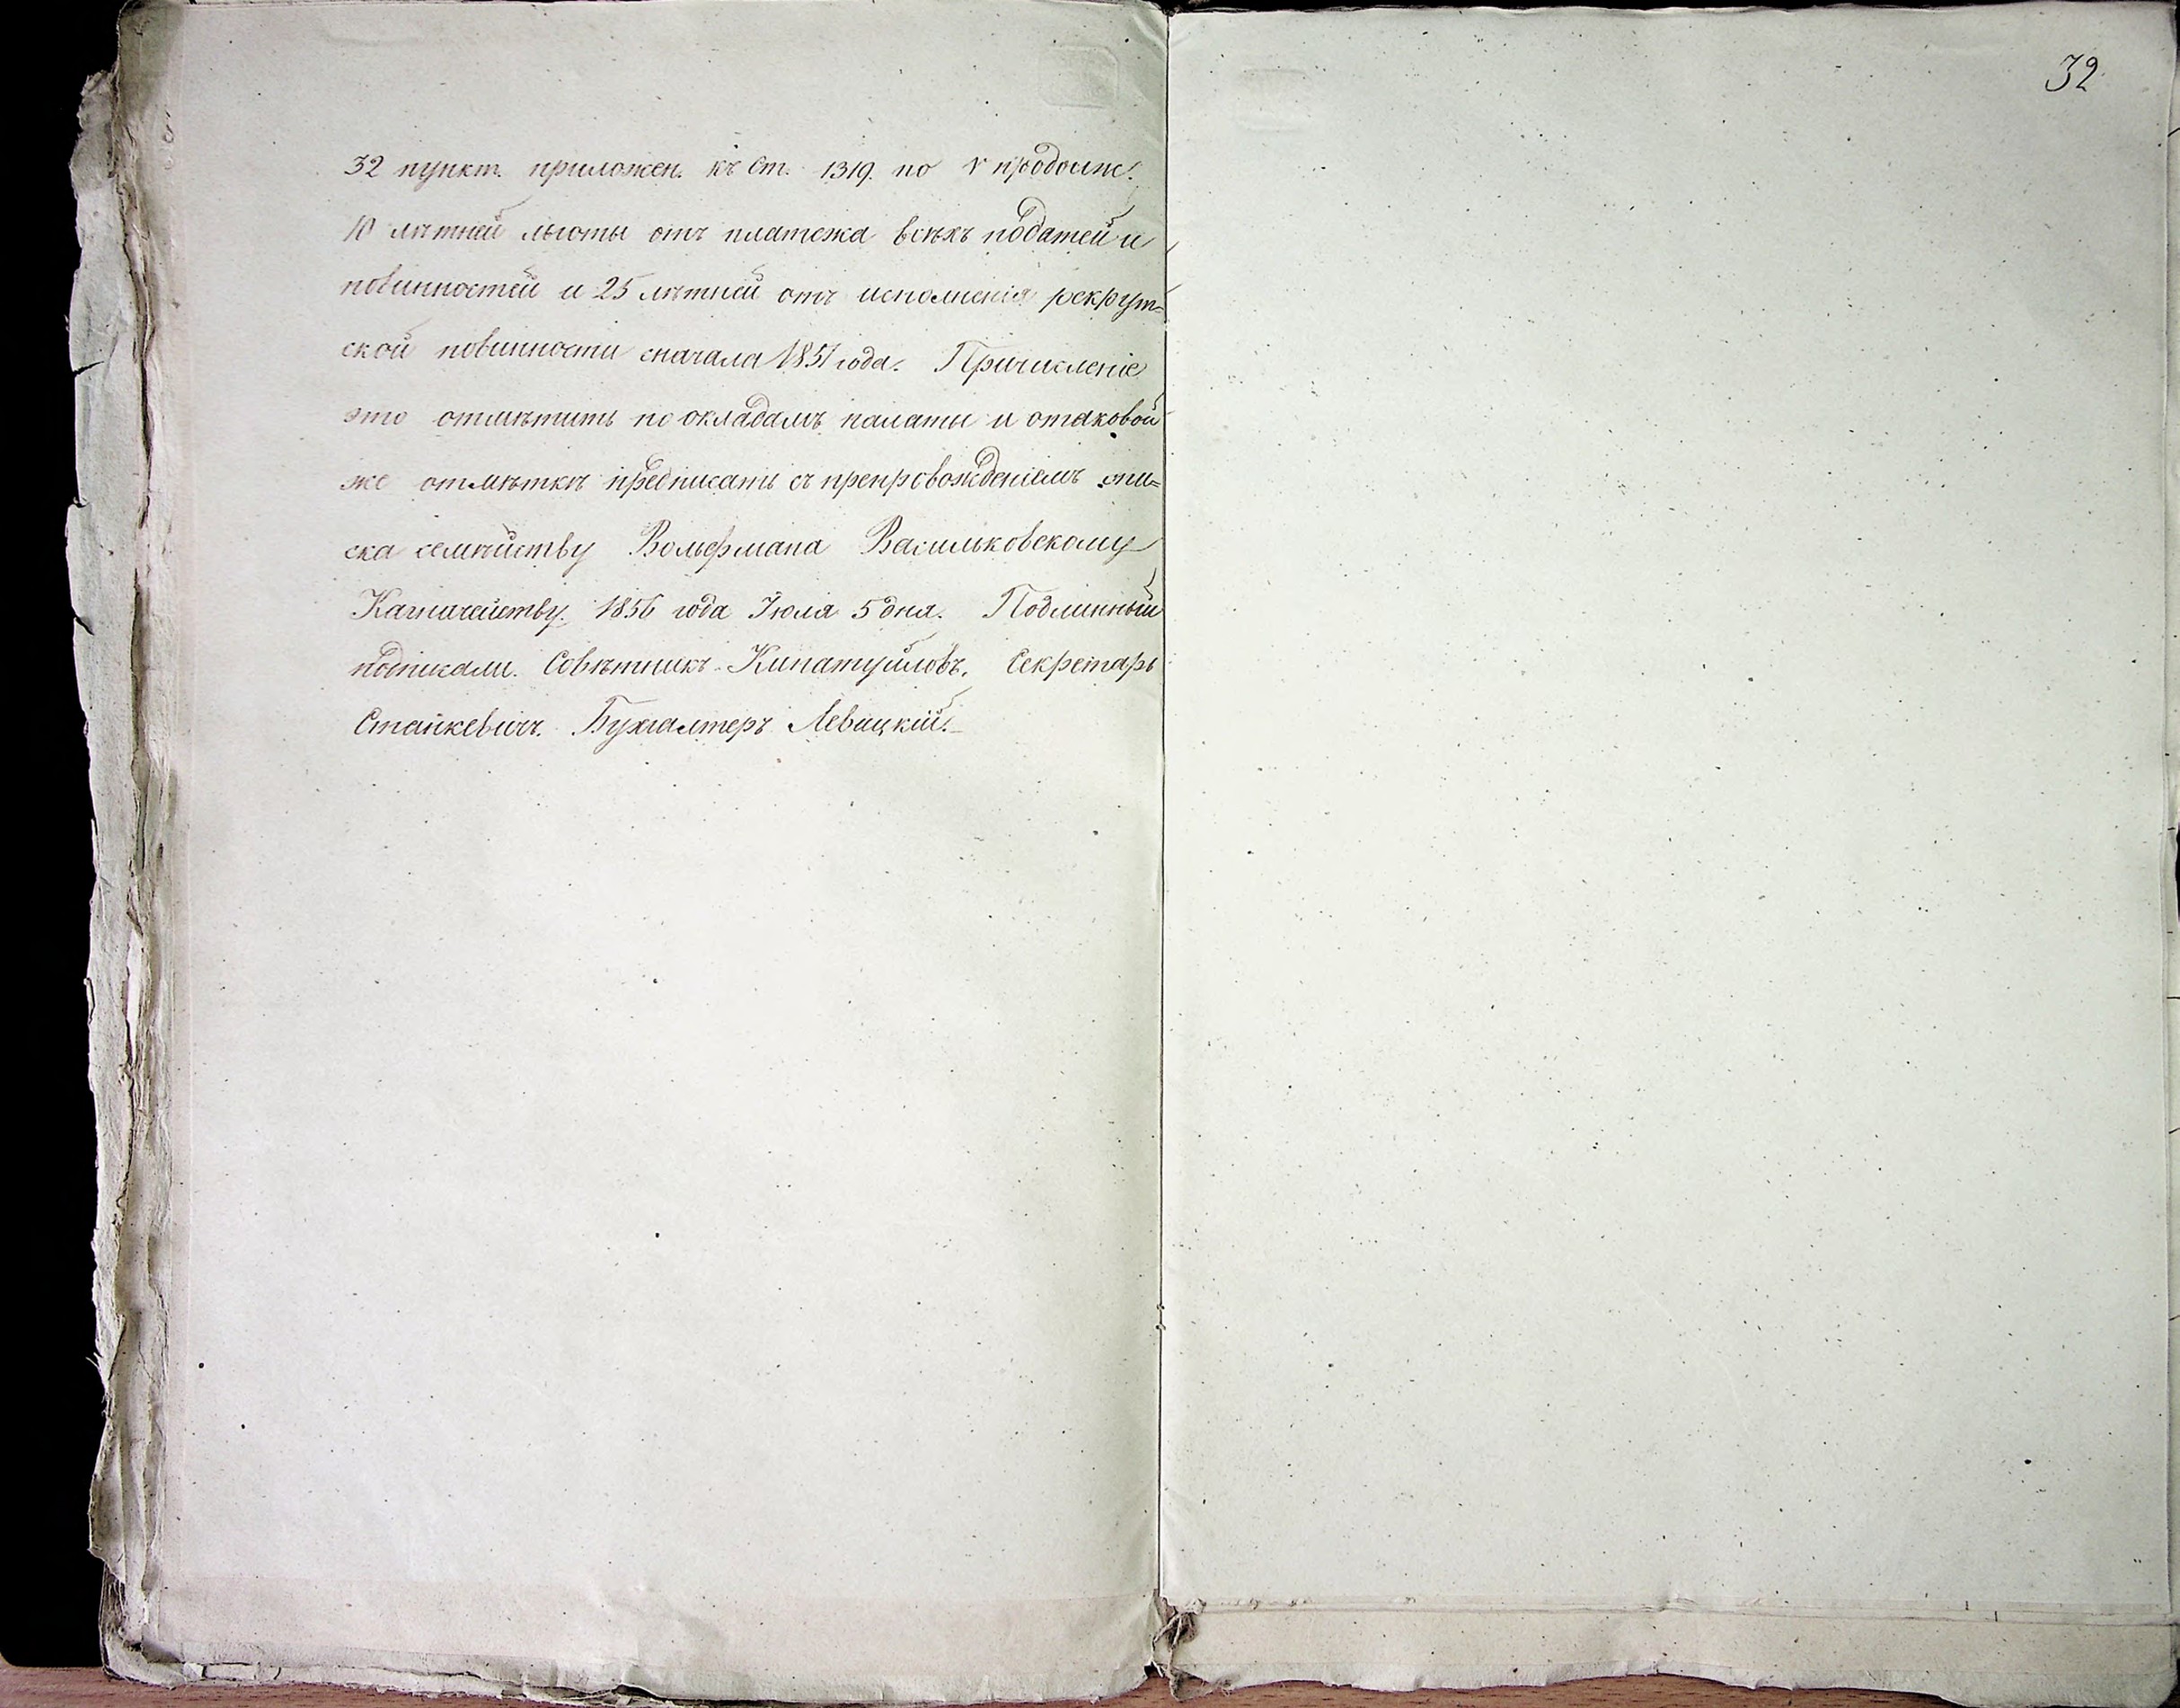 32
32 пункт. приложен. къ ст. 1319. по V продолж.
10 лѣтней льготы отъ платежа всѣхъ податей и
повинностей и 25 лѣтней отъ исполненія рекрут=
ской повинности сначала 1851 года. Причисленіе
это отмѣтить по окладамъ палаты и отаковой
же отмѣткѣ предписать съ препровожденіемъ спи=
ска семѣйству Вольфмана Васильковскому
Казначейству. 1856 года Іюля 5 дня. Подлинный
подписали. Совѣтникъ Секретарь
Станкевичъ. Бухгалтеръ Левицкій.